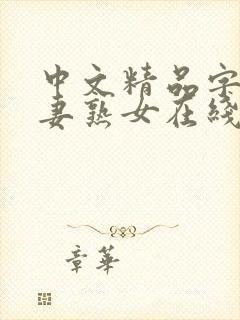 中文精品字
妻熟女在线
章華